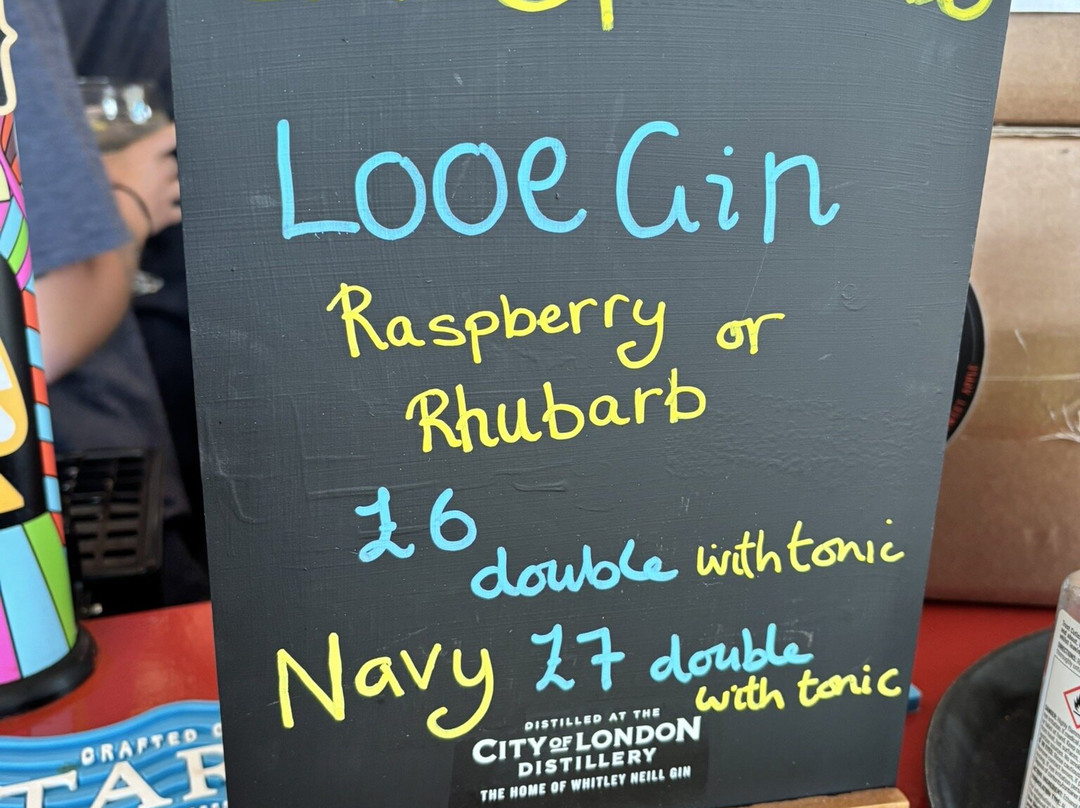 Looe Gin
Raspberry or
Rhubarb
£6
double with tonic
Navy £7 double
with tonic
DISTILLED AT THE
CITY OF LONDON
DISTILLERY
THE HOME OF WHITLEY NEILL GIN
CRAFTED